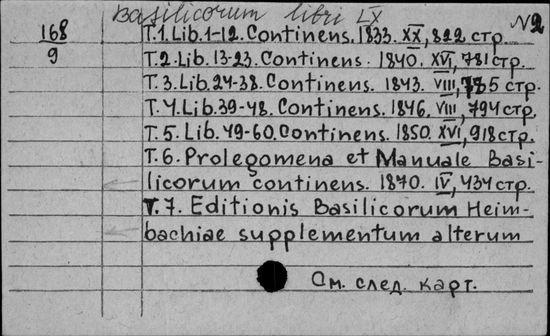 Basilicorum libri LX
№2
168
9
T.1. Lib. 1-12. Continens. 1833. XX, 822 стр.
T.2. Lib. 13-23. Continens. 1840. XVI, 781 стр.
T.3. Lib. 24-38. Continens. 1843. VIII, 785 стр.
T.4. Lib. 39-48. Continens. 1846. VIII, 794 стр.
T.5. Lib. 49-60. Continens. 1850. XVI, 918 стр.
T.6. Prolegomena et Manuale Basi-
licorum continens. 1870. IV, 434 стр.
T.7. Editionis Basilicorum Heim-
bachiae supplementum alterum
См. след. карт.